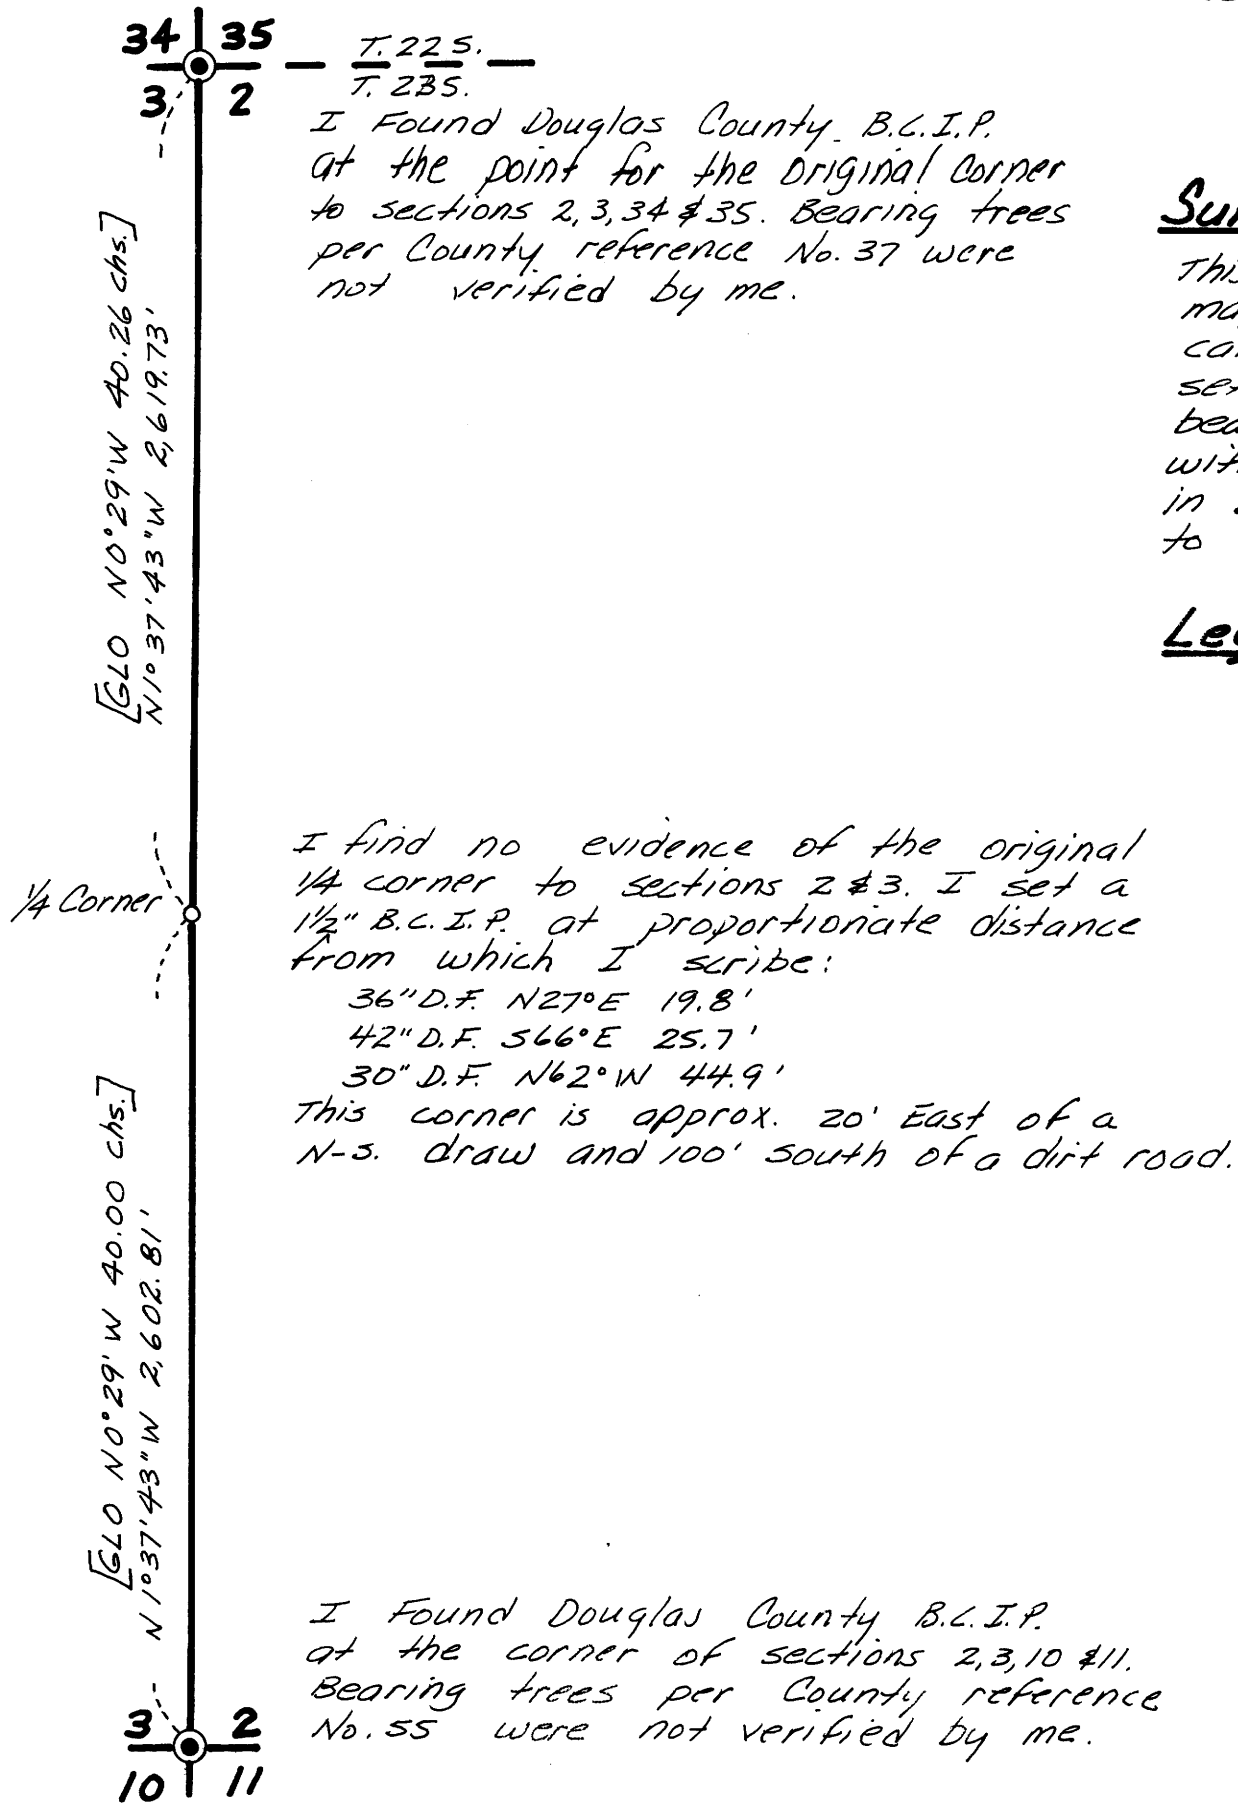 34 35
T. 22 S.
T. 23 S.
3 2
I Found Douglas County B.C.I.P.
at the point for the original corner
to sections 2, 3, 34 & 35. Bearing trees
per County reference No. 37 were
not verified by me.
[GLO N0°29'W 40.26 chs.]
N1°37'43"W 2,619.73'
1/4 Corner
I find no evidence of the original
1/4 corner to sections 2 & 3. I set a
1½" B.C.I.P. at proportionate distance
from which I scribe:
36" D.F. N27°E 19.8'
42" D.F. S66°E 25.7'
30" D.F. N62°W 44.9'
This corner is approx. 20' East of a
N-S. draw and 100' South of a dirt road.
[GLO N0°29'W 40.00 chs.]
N1°37'43"W 2,602.81'
I Found Douglas County B.C.I.P.
at the corner of sections 2, 3, 10 & 11.
Bearing trees per County reference
No. 55 were not verified by me.
3 2
10 11